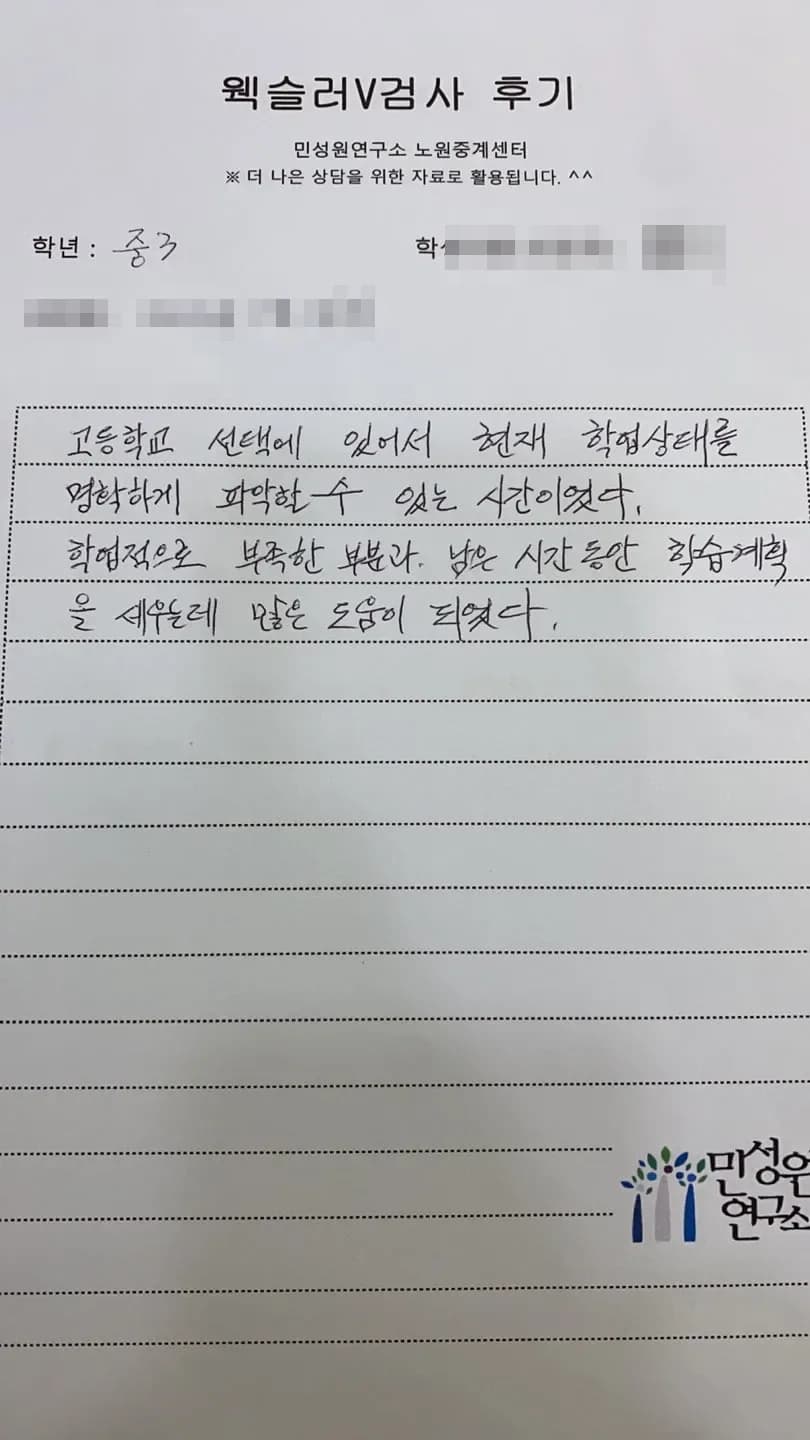 웩슬러V검사 후기
민성원연구소 노원중계센터
※ 더 나은 상담을 위한 자료로 활용됩니다. ^^
학년 : 중3
학
고등학교 선택에 있어서 현재 학업상태를
명학하게 파악할 수 있는 시간이었다.
학업적으로 부족한 부분과. 남은 시간동안 학습계획
을 세우는데 많은 도움이 되었다.
민성원
연구소